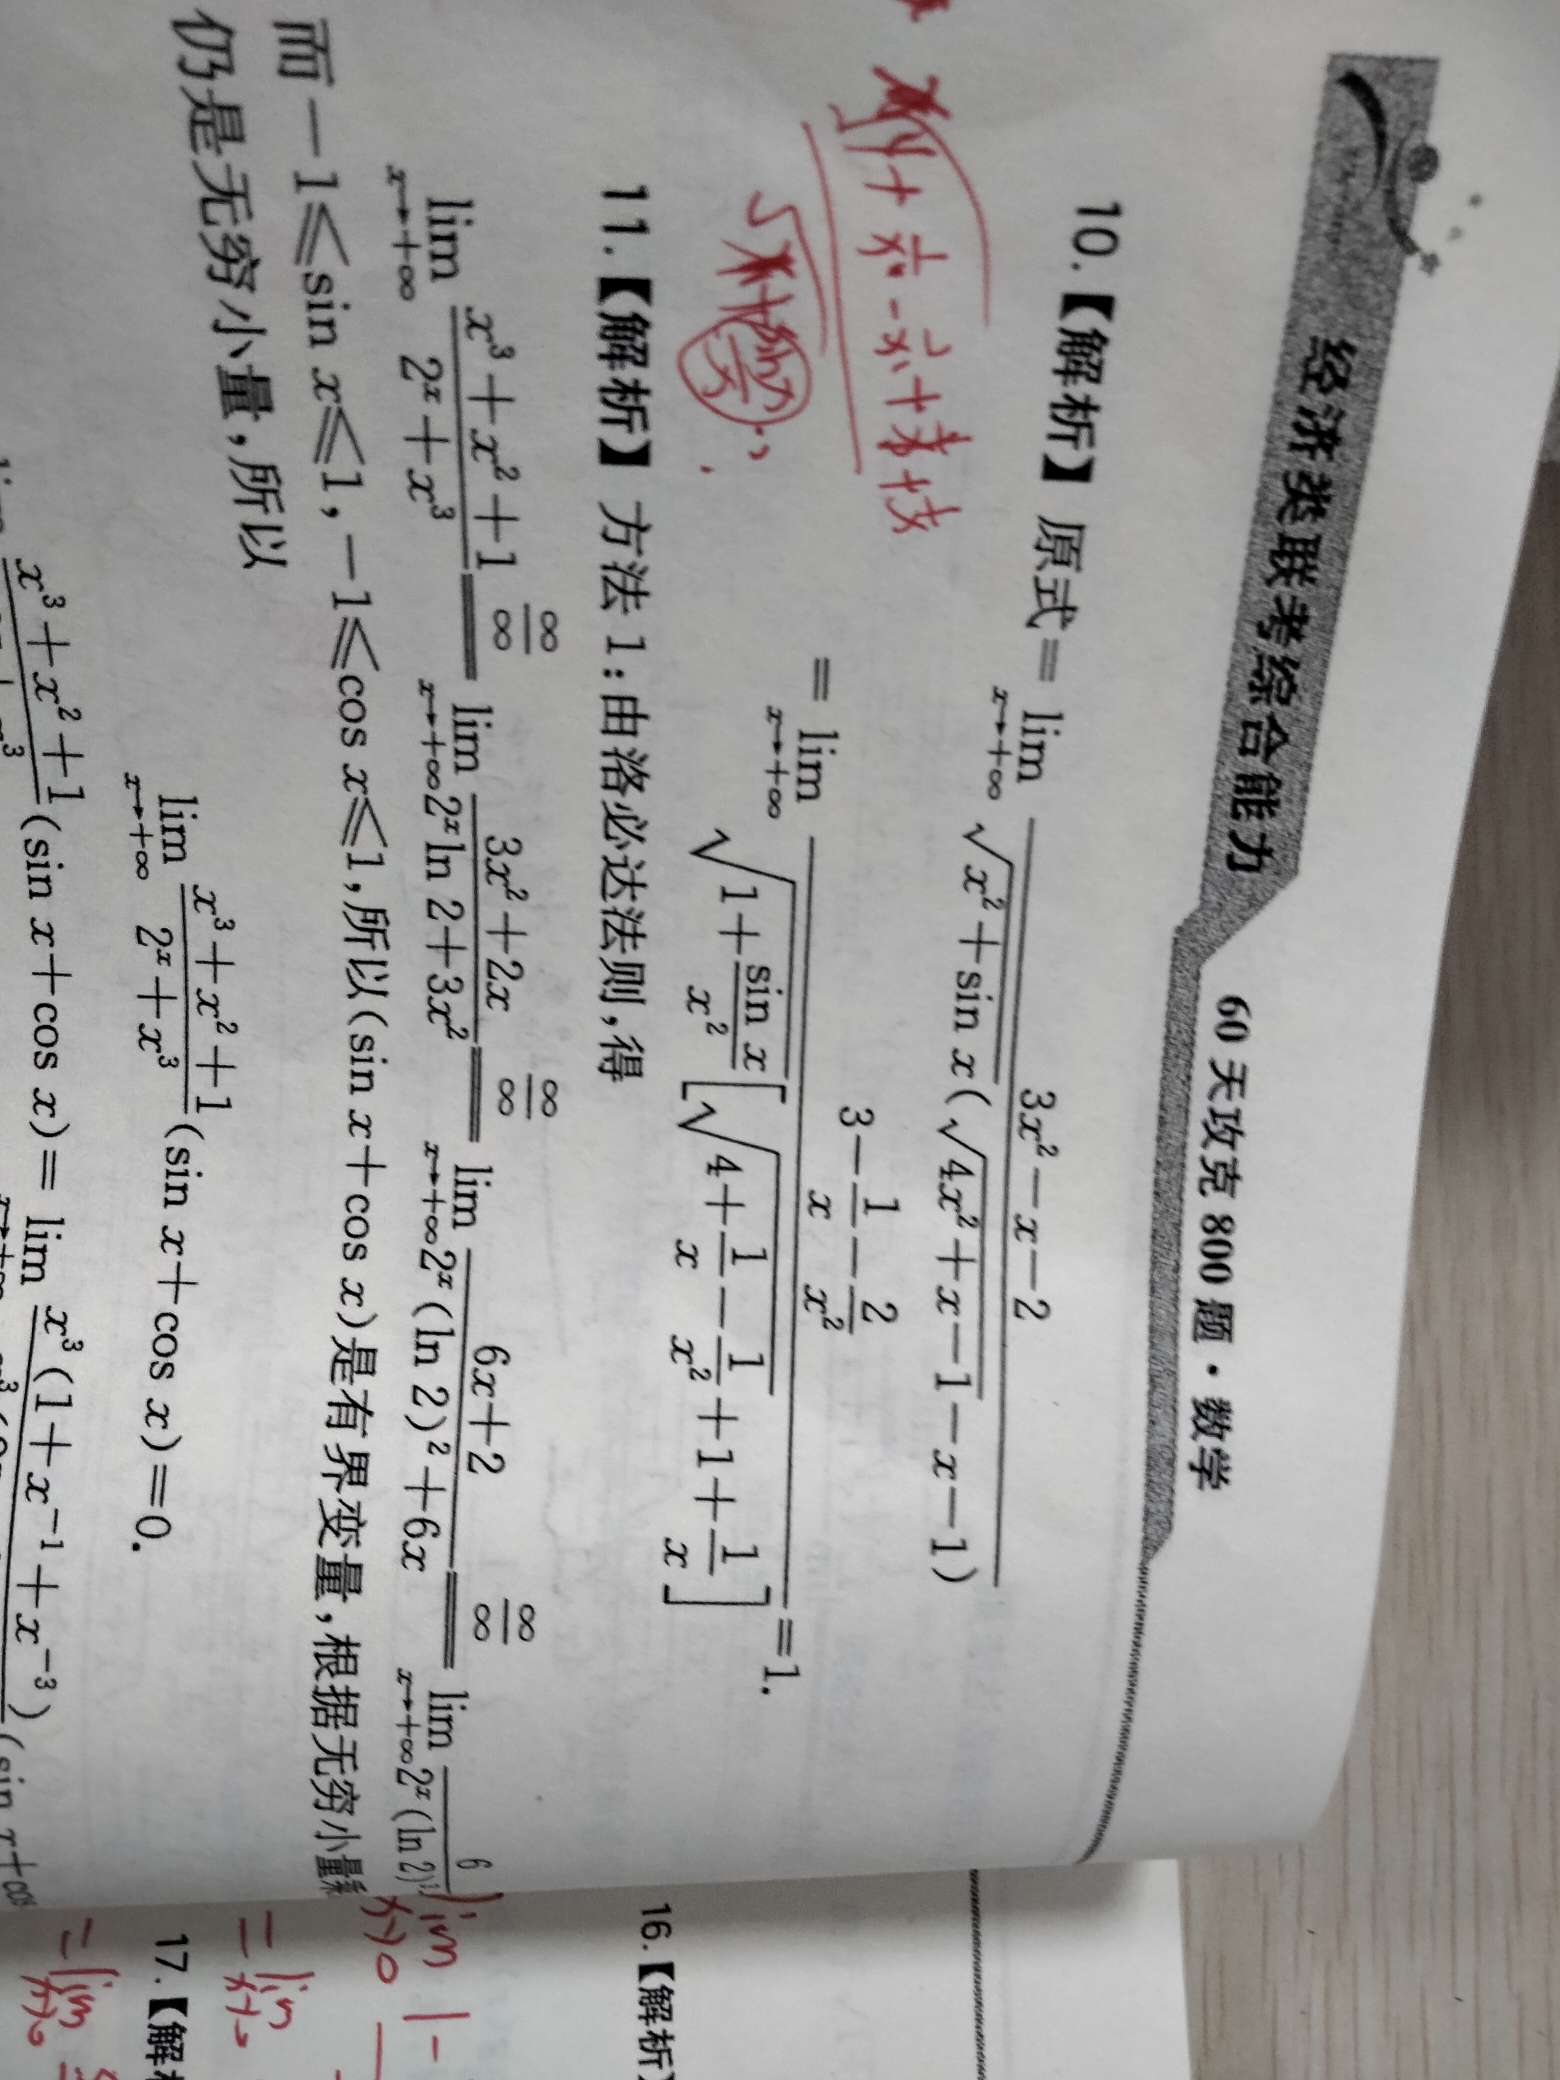 经济类联考综合能力 60天攻克800题·数学
10.【解析】 原式=lim x→+∞ (3x²-x-2)/(√(x²+sin x)(√(4x²+x-1)-x-1))
=lim x→+∞ (3-1/x-2/x²)/(√(1+sin x/x²)[√(4+1/x-1/x²)+1+1/x])=1.
11.【解析】 方法1:由洛必达法则,得
lim x→+∞ (x³+x²+1)/(2ˣ+x³) =(∞/∞)= lim x→+∞ (3x²+2x)/(2ˣln 2+3x²) =(∞/∞)= lim x→+∞ (6x+2)/(2ˣ(ln 2)²+6x) =(∞/∞)= lim x→+∞ 6/(2ˣ(ln 2)
而-1≤sin x≤1,-1≤cos x≤1,所以(sin x+cos x)是有界变量,根据无穷小量
仍是无穷小量,所以
lim x→+∞ (x³+x²+1)/(2ˣ+x³) (sin x+cos x)=0.
x³+x²+1 (sin x+cos x)=lim x³(1+x⁻¹+x⁻³) (sin x+cos
16.【解析】
lim x→0 1-
=lim x→0
17.【解析
=lim x→0